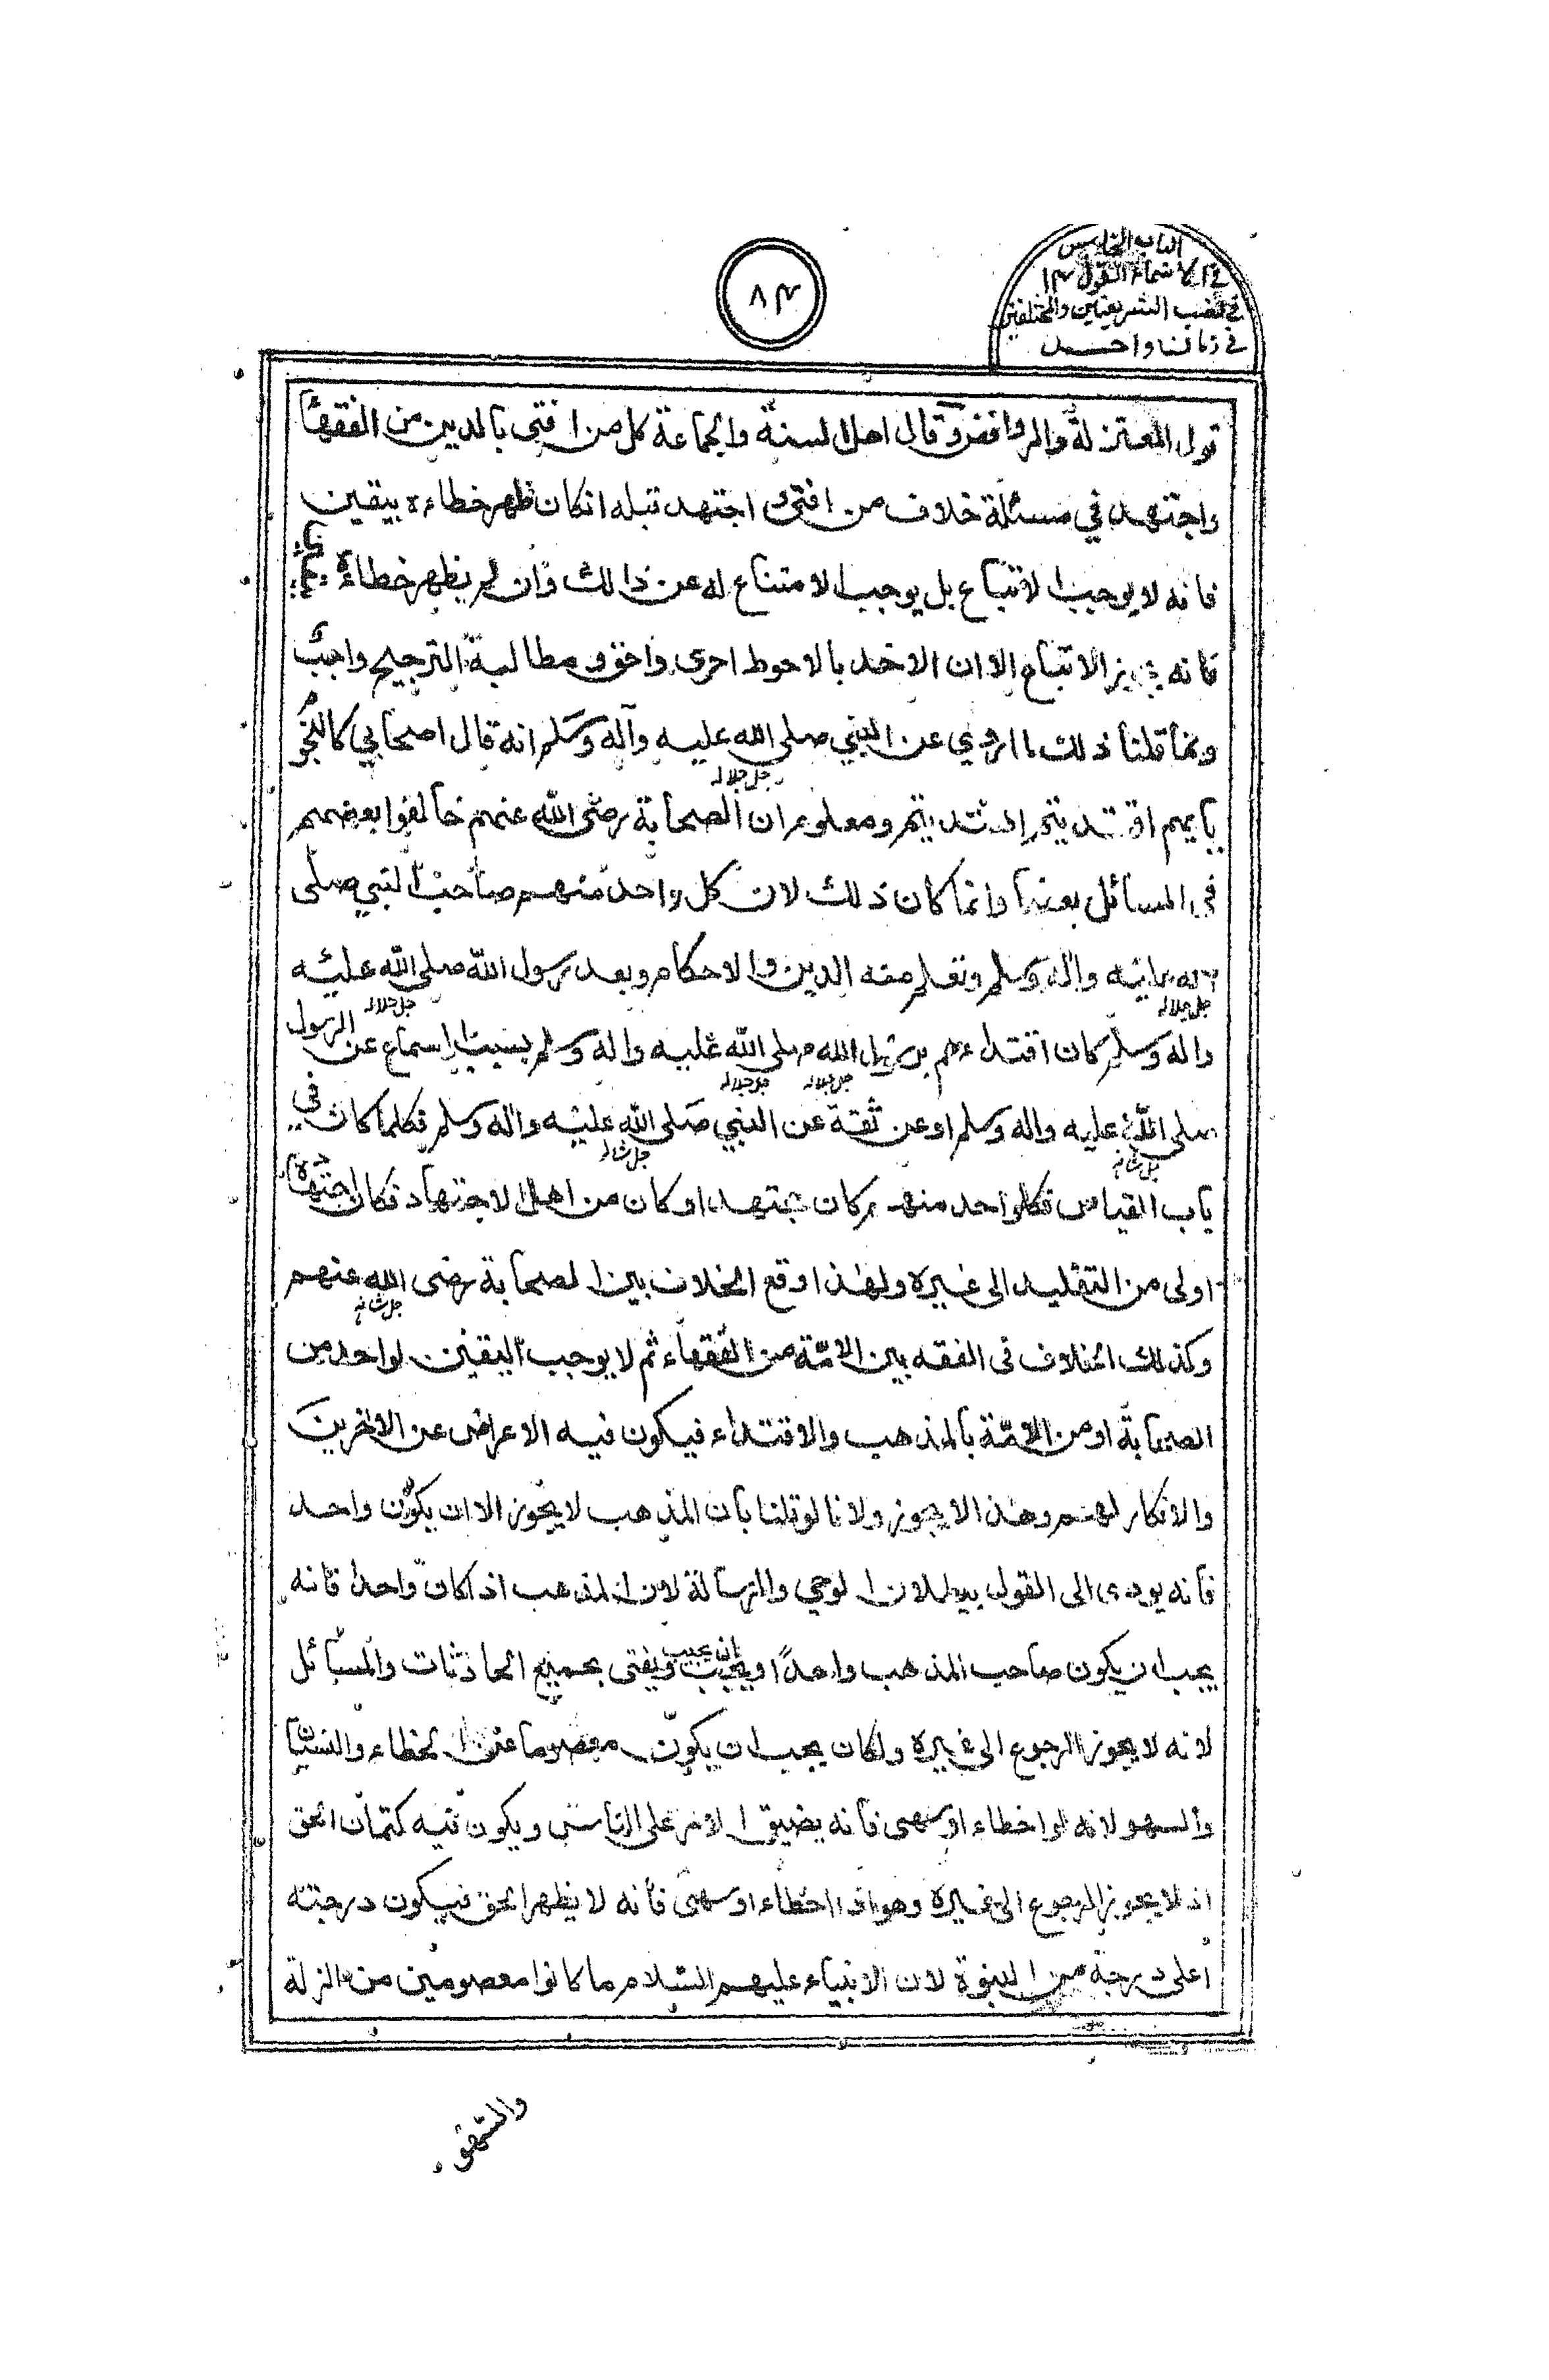 الباب الخامس
في الاشياء القول ١٣
في نصب الشريعتين والمختلفين
في زمان واحد
٨٣
قول المعتزلة والروافض وقال اهل السنة والجماعة كل من افتى بالدين من الفقهاء
واجتهد في مسئلة خلاف من افتى و اجتهد قبله انكان ظهر خطاءه بيقين
فانه لا يوجب الاتباع بل يوجب الامتناع له عن ذالك وان لم يظهر خطاءه
فانه يجوز الاتباع الا ان الاخذ بالاحوط احرى واحق ومطالبة الترجيح واجب
وانما قلنا ذلك لما روي عن النبي صلى الله عليه وآله وسلم انه قال اصحابي كالنجو
جل جلاله
بايهم اقتديتم اهتديتم ومعلوم ان الصحابة رضى الله عنهم خالفوا بعضهم
في المسائل بعضا وانما كان ذلك لان كل واحد منهم صاحب النبي صلى
الله عليه واله وسلم وتعلم منه الدين والاحكام وبعد رسول الله صلى الله عليه
جل جلاله جل جلاله
واله وسلم كان اقتداءهم برسول الله صلى الله عليه واله وسلم بسبب اسماع عن الرسول
جل جلاله جل جلاله
صلى الله عليه واله وسلم او عن ثقة عن النبي صلى الله عليه واله وسلم فكلما كان في
جل شانه جل شانه
باب القياس فكلواحد منهم كان مجتهدا او كان من اهل الاجتهاد فكان اجتهاده
اولى من التقليد الى غيره ولهذا وقع الخلاف بين الصحابة رضى الله عنهم
جل شانه
وكذلك اختلاف فى الفقه بين الائمة من الفقهاء ثم لا يوجب اليقين لواحد من
الصحابة او من الائمة بالمذهب والاقتداء فيكون فيه الاعراض عن الاخرين
والانكار لهم وهذا لا يجوز ولانا لو قلنا بان المذهب لا يجوز الا ان يكون واحد
فانه يودى الى القول ببطلان الوحي والرسالة لان المذهب اذا كان واحدا فانه
يجب ان يكون صاحب المذهب واحدًا ويجب ان يجيب ويفتى بجميع الحادثات والمسائل
لانه لا يجوز الرجوع الى غيره ولكان يجب ان يكون معصوما عن الخطاء والنسيان
والسهو لانه لو اخطاء او سهى فانه يضيق الامر على الناس ويكون فيه كتمان الحق
اذ لا يجوز الرجوع الى غيره وهو اذا اخطاء او سهى فانه لا يظهر الحق فيكون درجته
اعلى درجة من النبوة لان الانبياء عليهم السلام ما كانوا معصومين من الزلة
والسهو